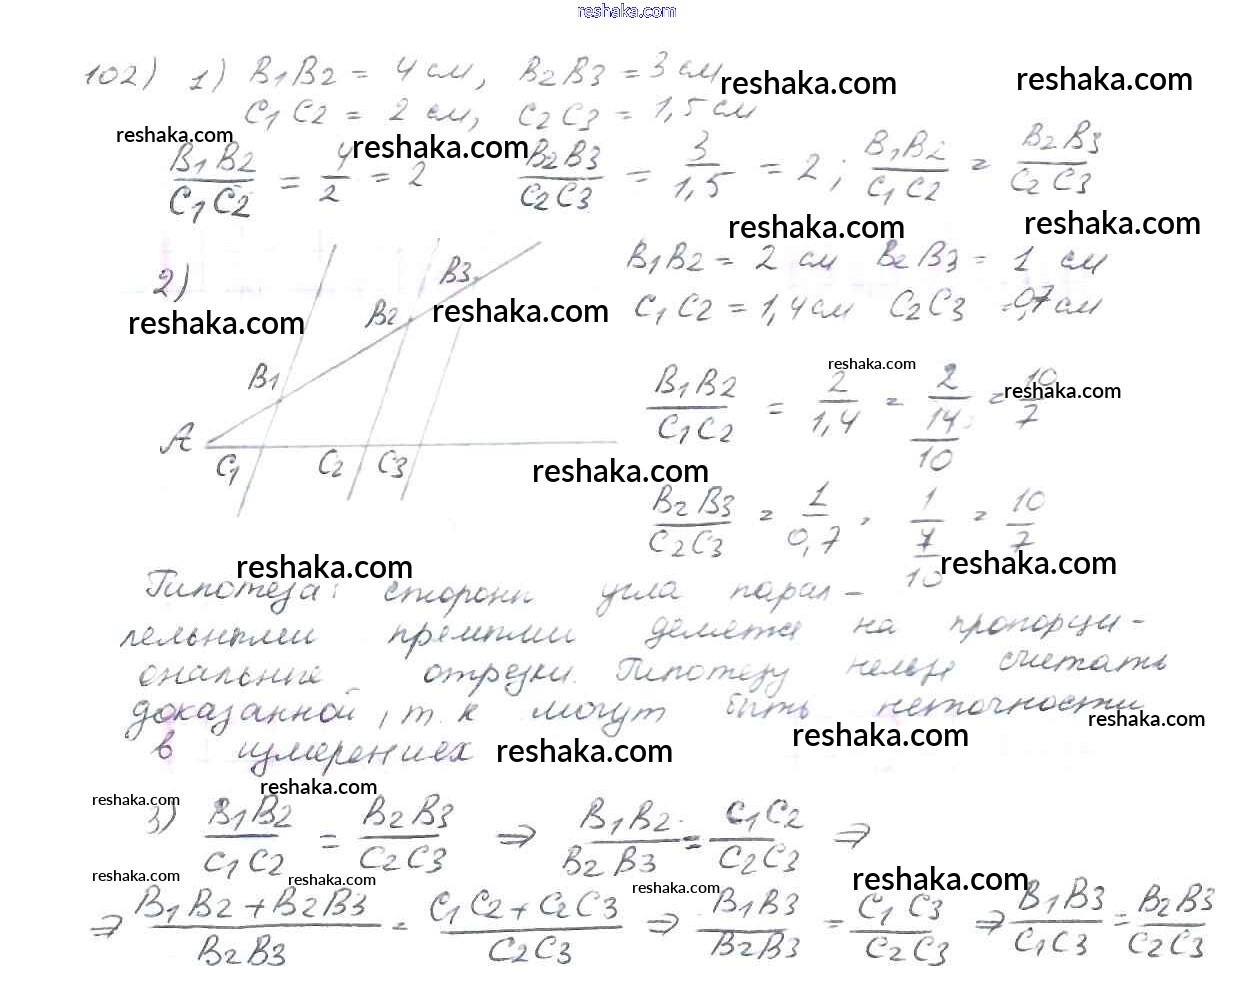 reshaka.com
102) 1) B1B2 = 4 см, B2B3 = 3 см
reshaka.com reshaka.com
C1C2 = 2 см, C2C3 = 1,5 см
reshaka.com reshaka.com
B1B2/C1C2 = 4/2 = 2 B2B3/C2C3 = 3/1,5 = 2; B1B2/C1C2 = B2B3/C2C3
reshaka.com reshaka.com
2) B1B2 = 2 см B2B3 = 1 см
C1C2 = 1,4 см C2C3 = 0,7 см
reshaka.com reshaka.com
A B1 B2 B3 C1 C2 C3
reshaka.com reshaka.com
B1B2/C1C2 = 2/1,4 = 2/(14/10) = 10/7
reshaka.com
B2B3/C2C3 = 1/0,7 = 1/(7/10) = 10/7
reshaka.com reshaka.com
Гипотеза: стороны угла парал-
лельными прямыми делятся на пропорци-
ональные отрезки. Гипотезу нельзя считать
доказанной, т.к могут быть неточности
reshaka.com reshaka.com
в измерениях reshaka.com
reshaka.com reshaka.com
3) B1B2/C1C2 = B2B3/C2C3 ⇒ B1B2/B2B3 = C1C2/C2C3 ⇒
reshaka.com reshaka.com reshaka.com reshaka.com
⇒ B1B2+B2B3/B2B3 = C1C2+C2C3/C2C3 ⇒ B1B3/B2B3 = C1C3/C2C3 ⇒ B1B3/C1C3 = B2B3/C2C3